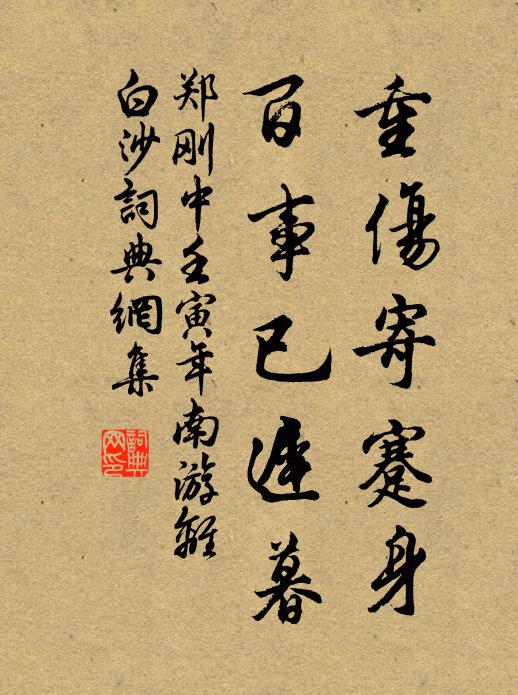 重傷寄蹇身
百事已遲暮
郑刚中壬寅年南游離
白沙詞典網集
詞典网印